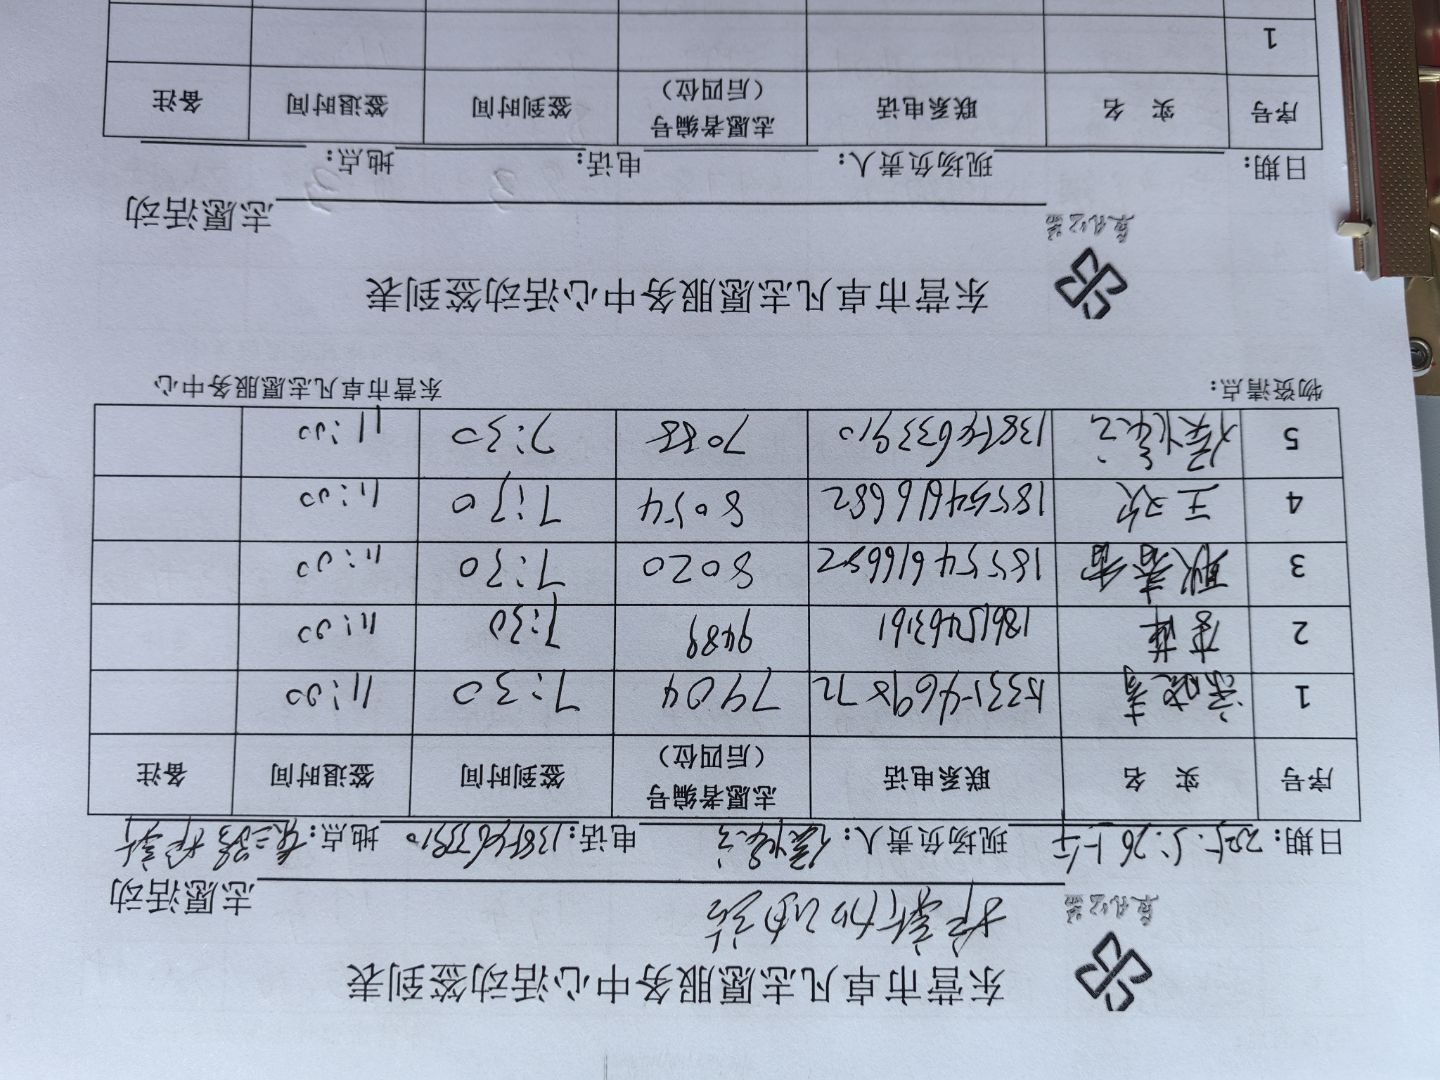 东营市卓凡志愿服务中心活动签到表
卓凡公益
加油站 志愿活动
日期：2025.5.26上午 现场负责人： 电话：13854633910 地点：东二路
序号 实 名 联系电话 志愿者编号（后四位） 签到时间 签退时间 备注
1 15331469872 7904 7:30 11:00
2 18615463161 9489 7:30 11:00
3 耿春香 18554616682 8020 7:30 11:00
4 王欢 18554616682 8054 7:30 11:00
5 13854633910 7088 7:30 11:00
物资清点： 东营市卓凡志愿服务中心
东营市卓凡志愿服务中心活动签到表
卓凡公益
志愿活动
日期： 现场负责人： 电话： 地点：
序号 实 名 联系电话 志愿者编号（后四位） 签到时间 签退时间 备注
1